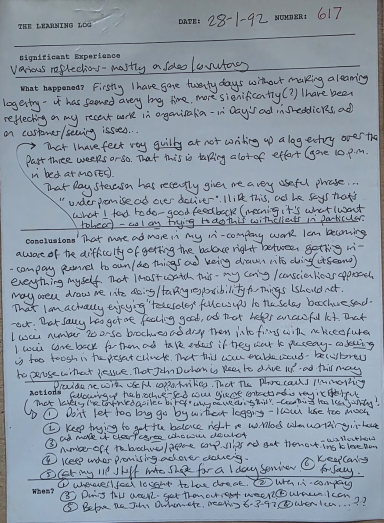 THE LEARNING LOG
DATE: 28-1-92 NUMBER: 617
Significant Experience
Various reflections - mostly on sales/consultancy
What happened? Firstly I have gone twenty days without making a learning
log entry - it has seemed a very long time, more significantly(?) I have been
reflecting on my recent work in organisation - in Day's and in Shedricks, and
on customer/ issues...
That I have felt very guilty at not writing up a log entry over the
past three weeks or so. That this is taking a lot of effort (gone 10 p.m.
in bed at ).
That Ray Stevenson has recently given me a very useful phrase...
"under promise and over deliver". I like this, and he says that's
what I tend to do - good feedback (meaning it's what I want
to hear) - and I am trying to do this with clients in particular.
Conclusions That more and more in my in-company work I am becoming
aware of the difficulty of getting the balance right between getting in-
company personnel to own/do things and being drawn into doing it
everything myself. That I must watch this - my caring/conscientious approach
may well draw me into doing/taking responsibility for things I should not.
That I am actually enjoying 'telesales' follow ups to the sales brochure send-
out. That has got me feeling good, and that helps an awful lot. That
I will number 20 or so brochures and drop them into firms with notices
I will come back for them and take orders if they want to place any -
is too tough in the present climate. That this will enable would-be buyers
to peruse without pressure. That John Durham is keen to drive us and this may
provide me with useful opportunities. That the phone calls I'm making
following up the brochure send-
Actions
① Don't let too long go by without logging - I will lose too much
② Keep trying to get the balance right re when working in house
and make it clear/agree who will do what
③ Number-off the brochures/prepare and get them out
④ Keep under promising and over delivering.
⑤ Get my stuff into shape for a 1 day seminar
⑥ Keep
When? ① whenever I feel I ought to ② When in-company
③ During this week - get them out next week ④ Whenever I can
⑤ Before the John Durham etc. meeting 6-3-92 ⑥ When I can...??